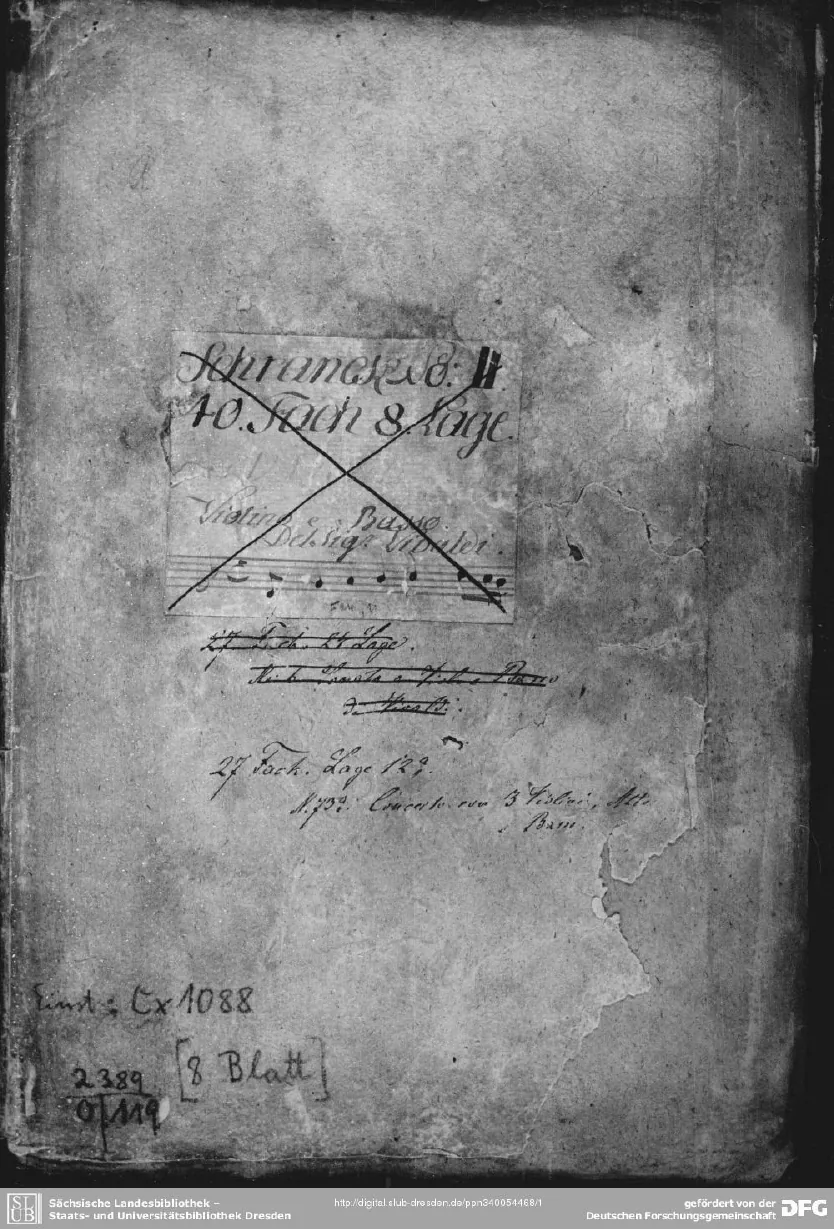 Schranck No: II.
10. Fach 8. Lage.
Violino e Basso.
Del Sigr. Vivaldi.
27 Fach. 24 Lage.
3. Viol.
27 Fach. Lage 12?.
N. 73?. Concerto con 3 Violini, Alto
e Basso.
Einst: Cx 1088
[8 Blatt]
2389
O/119
SLUB
Sächsische Landesbibliothek –
Staats- und Universitätsbibliothek Dresden
http://digital.slub-dresden.de/ppn340054468/1
gefördert von der
Deutschen Forschungsgemeinschaft
DFG